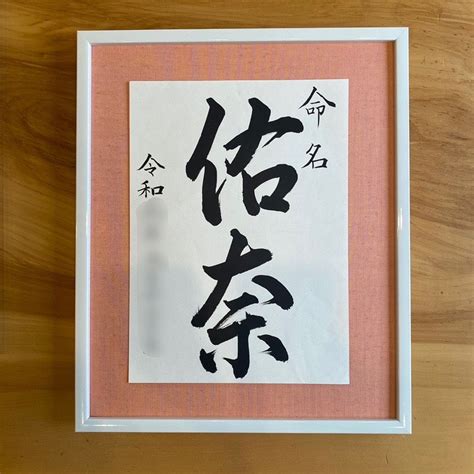 命名
佑奈
令和